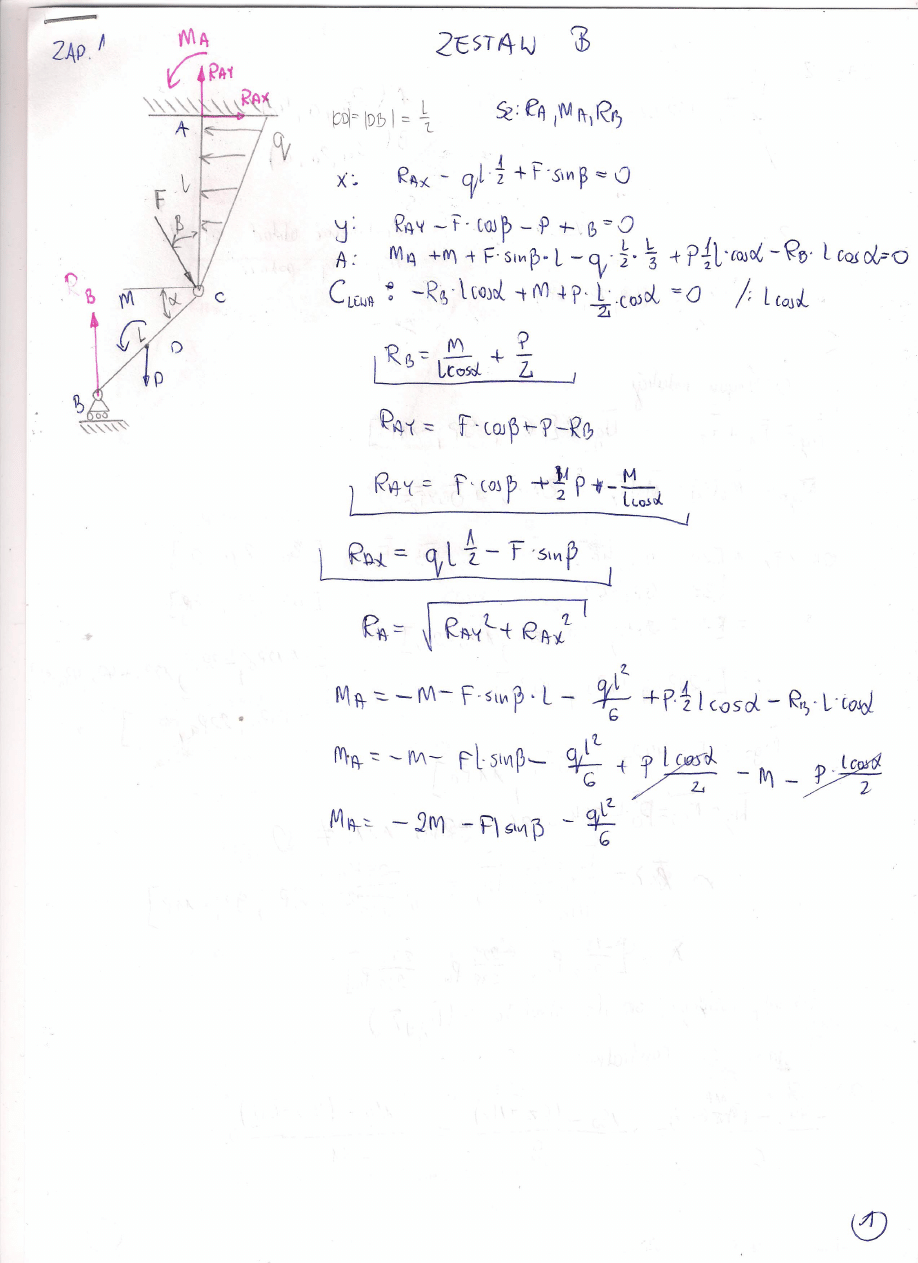 ZAD. 1
ZESTAW B
MA
RAY
RAX
A
q
l
F
β
M
α
C
L
D
P
B
RB
|CD|=|DB|= L/2
Sz: RA, MA, RB
x: RAX - ql·1/2 + F·sinβ = 0
y: RAY - F·cosβ - P + B = 0
A: MA + M + F·sinβ·L - q·L/2·L/3 + P1/2l·cosα - RB·l cosα=0
CLEWA: -RB·lcosα + M + P·L/2·cosα = 0 /: Lcosα
RB = M/lcosα + P/2
RAY = F·cosβ + P - RB
RAY = F·cosβ + 1/2 P - M/lcosα
RAX = ql 1/2 - F·sinβ
RA = √(RAY² + RAX²)
MA = -M - F·sinβ·L - ql²/6 + P·1/2 l cosα - RB·L·cosα
MA = -M - FL·sinβ - ql²/6 + P lcosα/2 - M - P·lcosα/2
MA = -2M - Fl sinβ - ql²/6
1